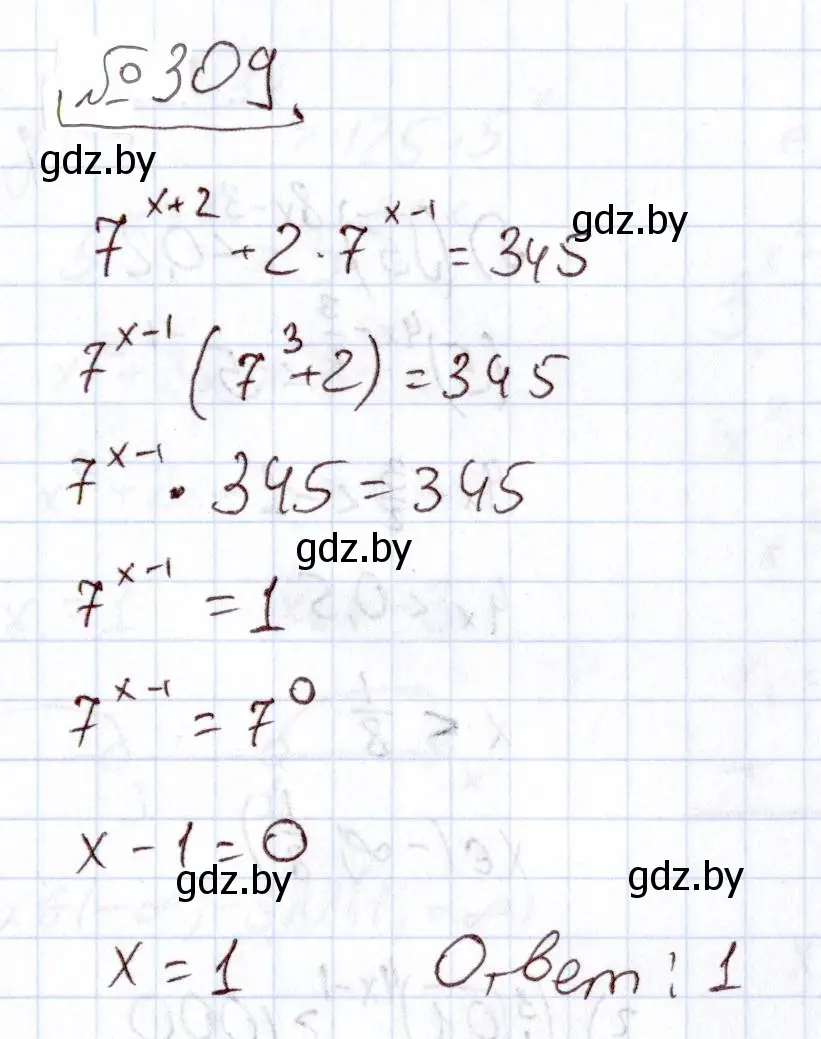 №309
gdz.by
7^{x+2} + 2·7^{x-1} = 345
gdz.by
7^{x-1} (7^3+2) = 345
7^{x-1} · 345 = 345
gdz.by
7^{x-1} = 1
7^{x-1} = 7^0
x - 1 = 0
gdz.by
gdz.by
x = 1 Ответ: 1